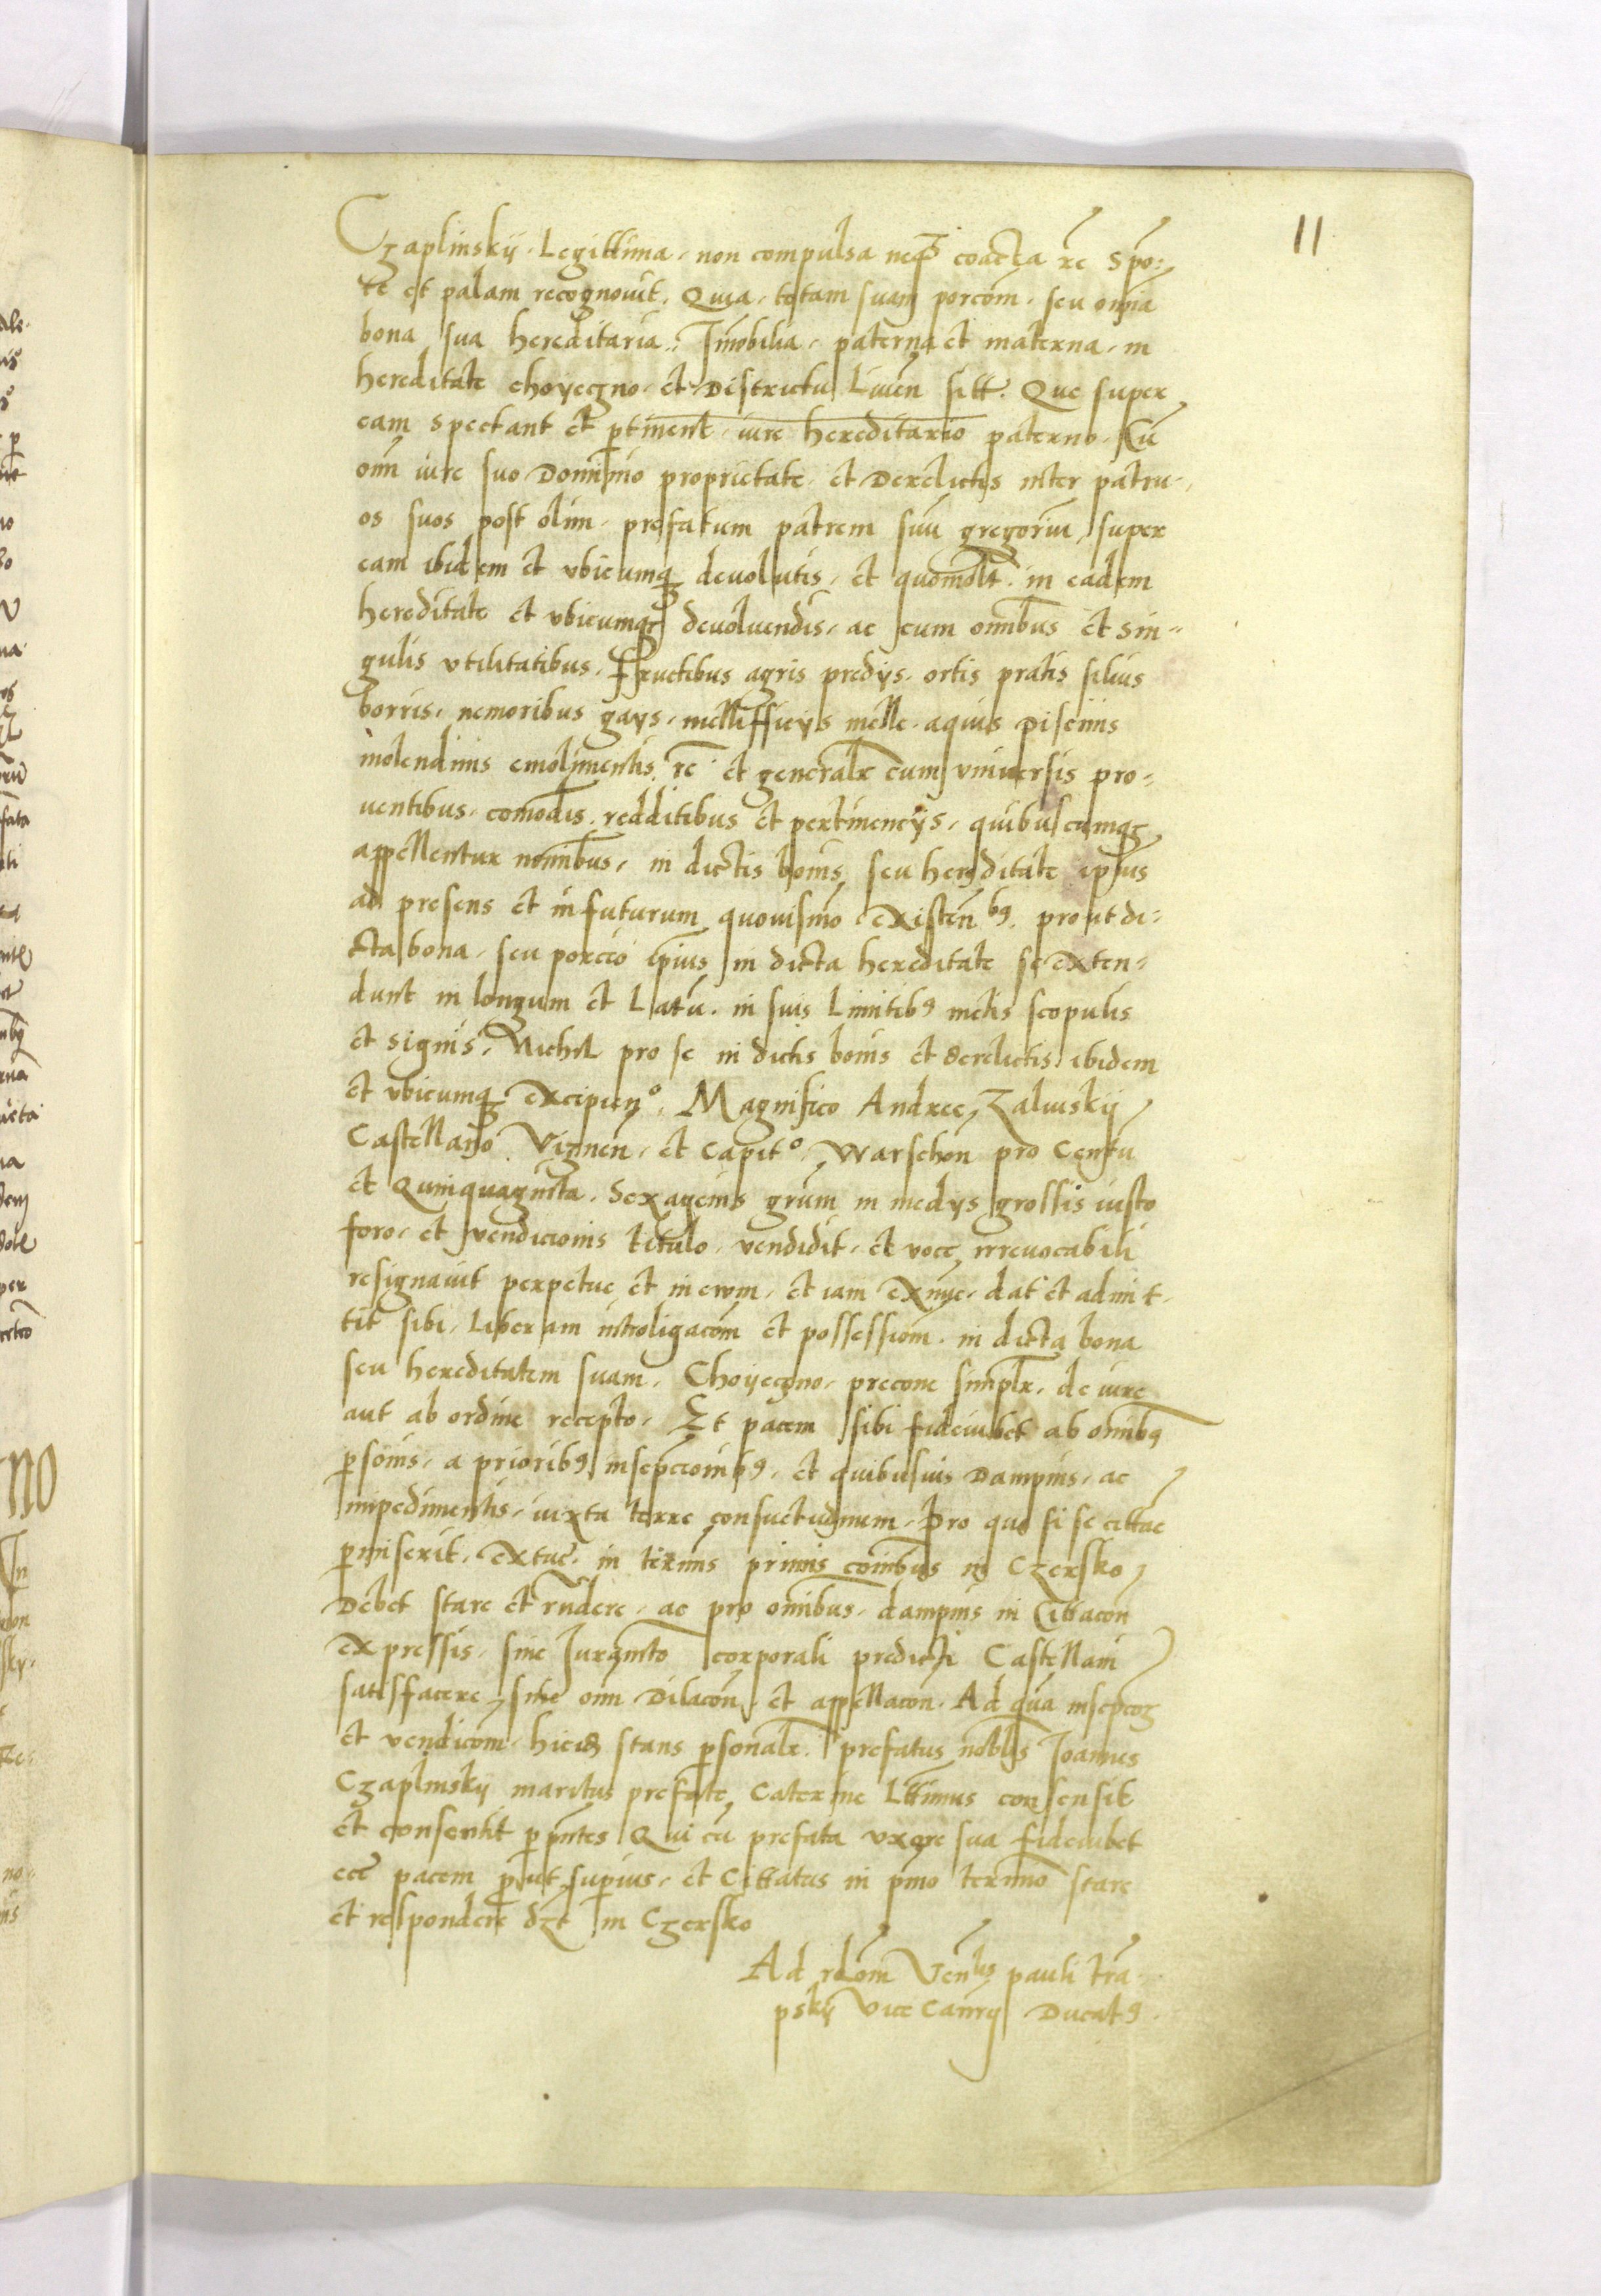 11
Czaplinskÿ . Legittima . non compulsa neqȝ coacta rc̄ Spo:
te et palam recognouit . Quia . totam suam porcom̄ . seu om̄ia
bona sua hereditaria . Im̄obilia . paterna et materna . in
hereditate choyecgno . et Districtu Liuen̄ sitt . Que super
eam spectant et ꝑtinent . iure hereditario paterno . Cū
om̄i iure suo Dominio proprietate et Derelictis inter patru-
os suos post olim . prefatum patrem suū gregoriū . super
eam ibidem et vbicumqȝ deuolutis . et quomolt̄ . in eadem
hereditate et vbicumqȝ deuoluendis . ac cum om̄ibus et sin-
gulis vtilitatibus . fructibus agris predÿs . ortis pratis siluis
borris . nemoribus gays . mellifficÿs melle . aquis piscinis
molendinis emolimentis . rc̄ et generalr̄ cum vniuersis pro-
uentibus . comodis . redditibus et pertinencÿs . quibuscumqȝ
appellentur nominibus . in dictis bonis seu hereditate ip̄ius
ad presens et in futurum quouismō existen̄bꝰ . prout di-
cta bona . seu porcio ip̄ius in dicta hereditate se exten-
dunt in longum et Latū . in suis Limitibꝰ metis scopulis
et signis . Nichil pro se in dictis bonis et derelictis ibidem
et vbicumqȝ excipien̄º . Magnifico Andree Zaluskÿ
Castellano Viznen̄ . et Capitº . Warschen̄ pro Centū
et Quinquaginta . Sexagenis grūm in medÿs grossis iusto
foro . et vendicionis titulo . vendidit . et voce irreuocabili
resignauit perpetue et in ewm . et iam exnūc . dat et admit-
tit sibi . Liberam introligacōm et possessiom̄ . in dicta bona
seu hereditatem suam . Choyecgno . precone simplr̄ . de iure
aut ab ordine recepto . Et pacem sibi fideiubet ab om̄ibꝰ
ꝑsonis . a prioribꝰ inscpcionibꝰ . et quibusuis Dampnis . ac
impedimentis . iuxta terre consuetudinem . Pro quo si se cittac̄
ꝑmiserit . extūc . in termīs primis com̄ibus in Czersko
Debet stare et rn̄dere . ac pro om̄ibus . dampnis in Cittacōn
expressis . sine Juramto corporali predicti Castellani
satisfacere . sine om̄i Dilacōn . et appellacōn . Ad quā inscpcoȝ
et vendicom̄ . stans ꝑsonalr̄ . prefatus nobl̄is Joannes
Czaplinskÿ maritus prefate Caterine Lttimus consensit
et consentit ꝑ pn̄tes Qui cū prefata vxore sua fideiubet
ecē pacem ꝓut suꝑius . et Cittatus in pm̄o termino stare
et respondere dȝt in Czersko
Ad rlōm Venlis pauli
Vice Canrÿ Ducatꝰ .